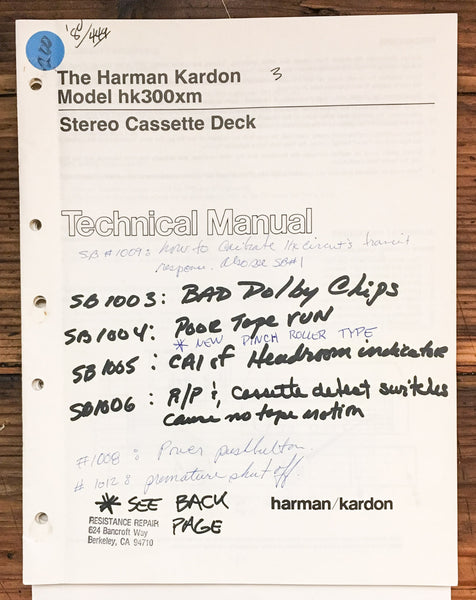 '8/444
200
The Harman Kardon 3
Model hk300xm
Stereo Cassette Deck
Technical Manual
SB #1009: how to Calibrate Hx circuit's transit
response. Also see SB#1
SB1003: BAD Dolby Chips
SB1004: Poor Tape run
* NEW PINCH ROLLER TYPE
SB1005: CAl of Headroom indicator
SB1006: R/P & Cassette detect switches
cause no tape motion
#1008: Power pushbutton.
#1012: premature shut off.
* SEE BACK
PAGE
harman/kardon
RESISTANCE REPAIR
624 Bancroft Way
Berkeley, CA 94710